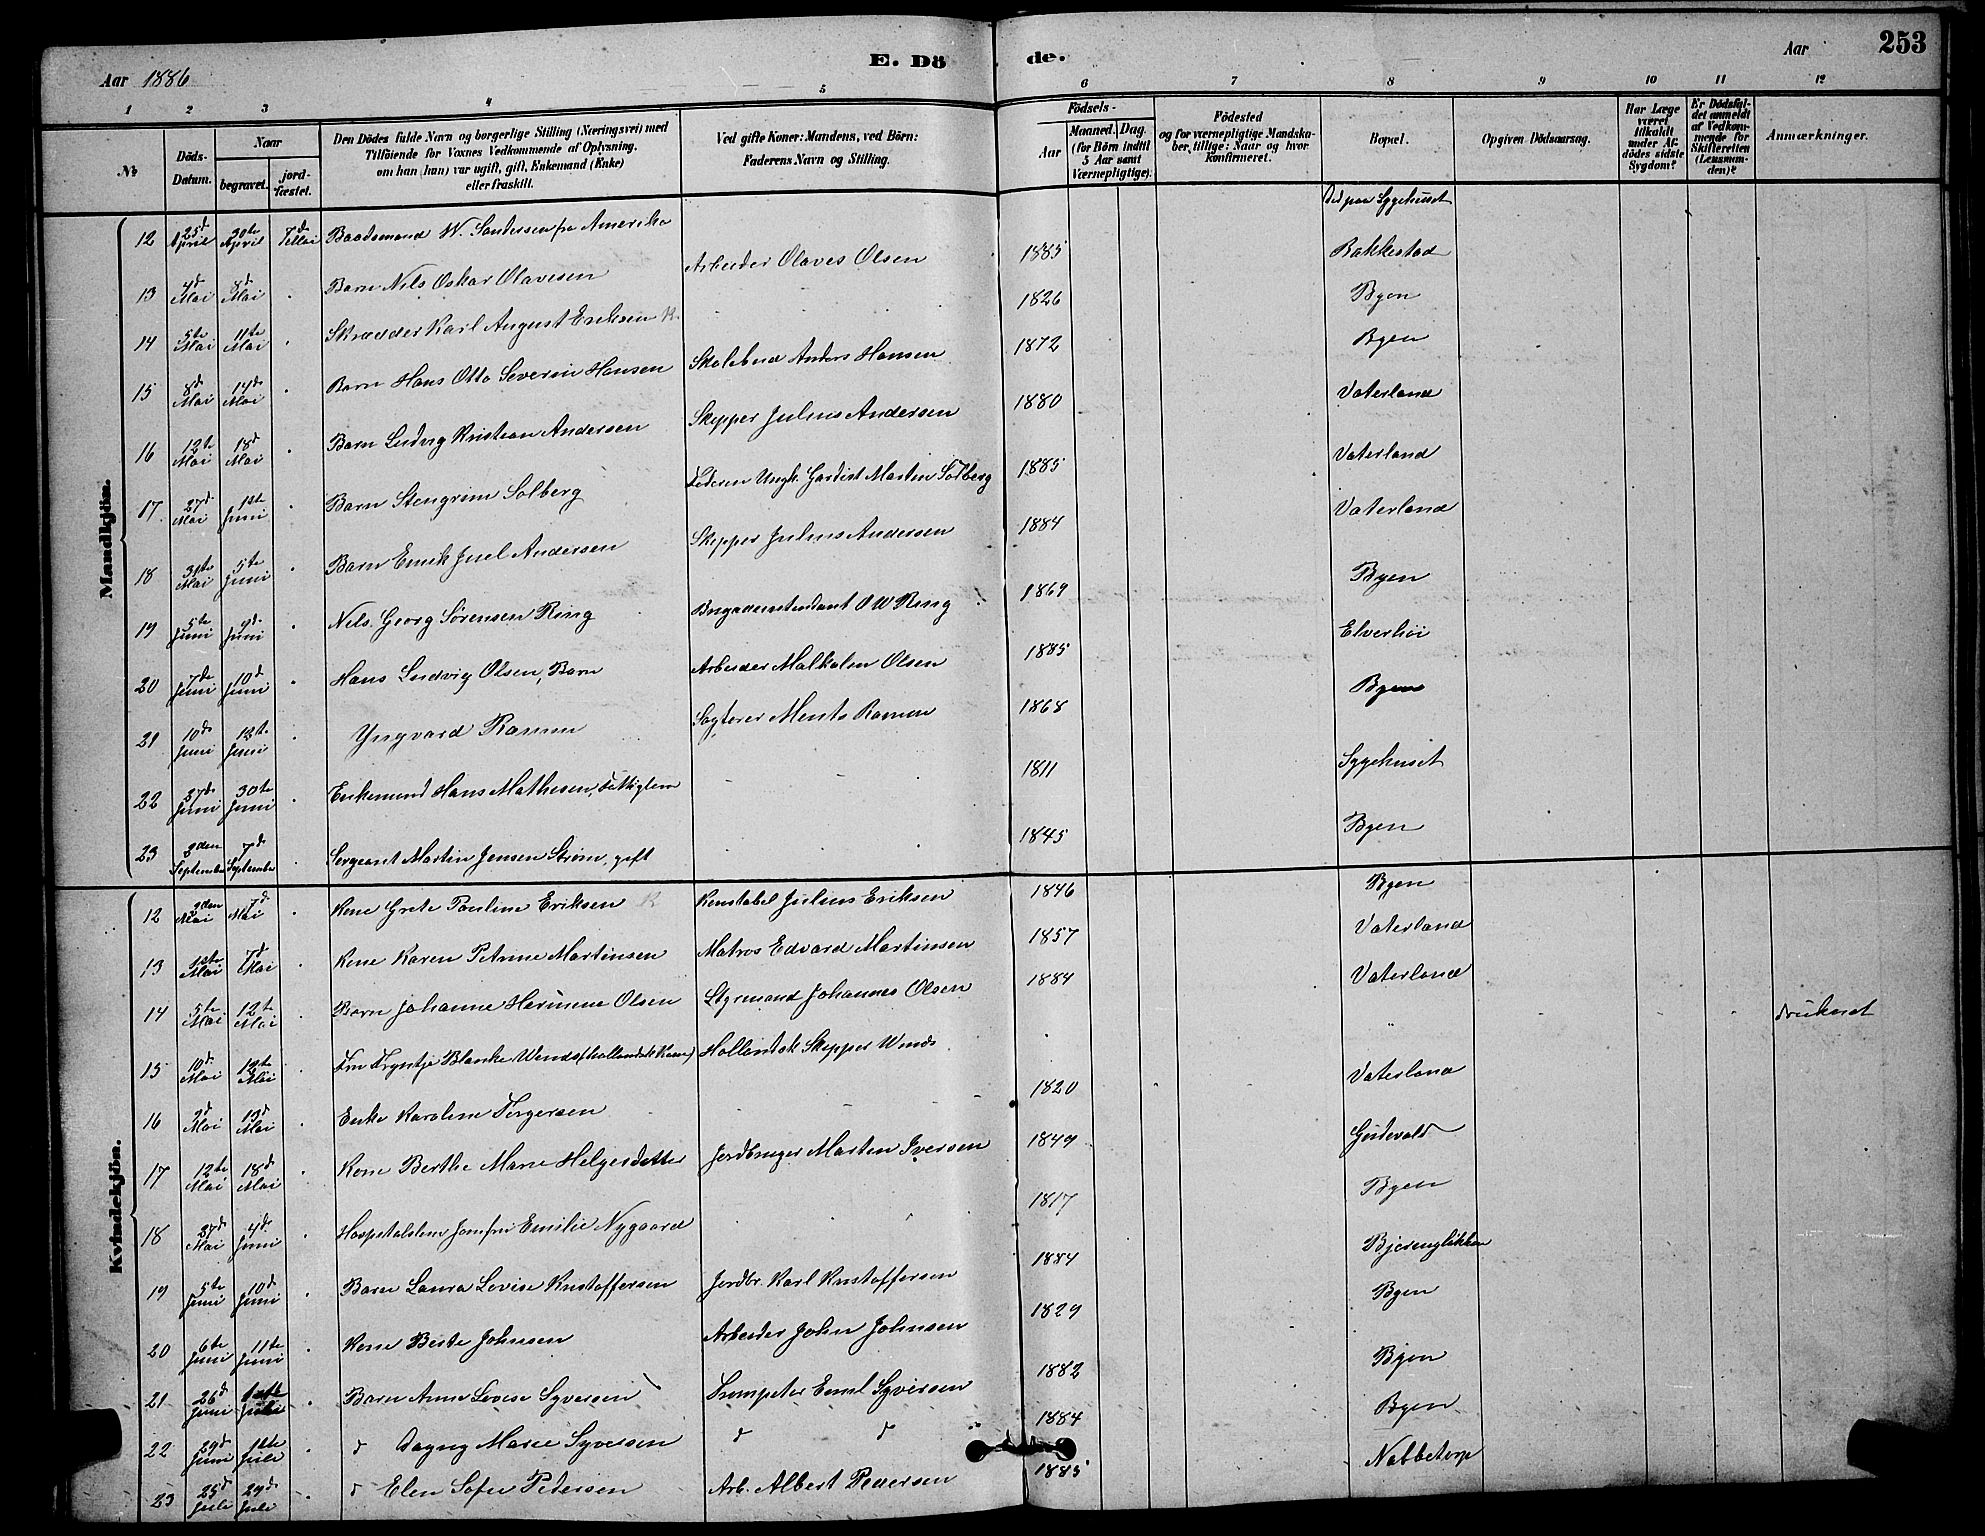 Aar 1886 E. Dö de. Aar 253
1 2 3 4 5 6 7 8 9 10 11 12
№
Döds-Datum.
Naar
begravet.
jord-fæstet.
Den Dödes fulde Navn og borgerlige Stilling (Næringsvei) med
Tilföiende for Voxnes Vedkommende af Oplysning.
om han (hun) var ugift, gift, Enkemand (Enke)
eller fraskilt.
Ved gifte Koner: Mandens, ved Börn:
Faderens Navn og Stilling.
Födsels-
Aar
Maaned. Dag.
(for Börn indtil
5 Aar samt
Værnepligtige).
Födested
og for værnepligtige Mandska-
ber, tillige: Naar og hvor
konfirmeret.
Bopæl.
Opgiven Dödsaarsag.
Har Læge
været
tilkaldt
under Af-
dödes sidste
Sygdom?
Er Dödsfal-
det anmeldt
af Vedkom-
mende for
Skifteretten
(Lensman-
den)?
Anmærkninger.
Mandkjön.
12 25d April 30te April Baadsmand W. Sandersen fra Amerika Död paa Sygehuset
13 4d Mai 8d Mai Barn Nils Oskar Olavesen Arbeider Olaves Olsen 1885 Bakkestad
14 5te Mai 11te Mai Skrædder Karl August Eriksen 1826 Byen
15 8d Mai 14d Mai Barn Hans Otto Severin Hansen Skolebud Anders Hansen 1872 Byen
16 12te Mai 18d Mai Barn Ludvig Kristian Andersen Skipper Julius Andersen 1880 Vaterland
17 27d Mai 1ste Juni Barn Stengrim Solberg Ungk. Gardist Martin Solberg 1885 Vaterland
18 31te Mai 5te Juni Barn Emik Juel Andersen Skipper Julius Andersen 1884 Vaterland
19 5te Juni 9d Juni Nils Georg Sörensen Ring O W Ring 1869 Byen
20 7de Juni 10d Juni Hans Ludvig Olsen, Barn Arbeider Malkolm Olsen 1885 Elverhöi
21 10d Juni 13te Juni Yngvard Ramm Ments Ramm 1868 Byen
22 27d Juni 30te Juni Enkemand Hans Mathesen, Fattiglem 1811 Sygehuset
23 3den September 7d September Sergeant Martin Jensen Ström, gift 1845 Byen
Kvindekjön.
12 2den Mai 7d Mai Kone Grete Pauline Eriksen Konstabel Julius Eriksen 1846 Byen
13 1ste Mai 7d Mai Kone Karen Petrine Martinsen Matros Edvard Martinsen 1857 Vaterland
14 5te Mai 12te Mai Barn Johanne Hermine Olsen Styrmand Johannes Olsen 1884 Vaterland
15 10d Mai 12te Mai Fru Fryntje Blanke Hollandsk Skipper druknet
16 9d Mai 13d Mai Enke Karoline Torgersen 1820 Vaterland
17 12te Mai 18d Mai Kone Berthe Marie Helgesdatter Jordbruger Marten Iversen 1849
18 27d Mai 4d Juni Hospitalslem Jomfru Emilie Nygaard 1817 Byen
19 5te Juni 10d Juni Barn Laura Lovise Kristoffersen Jordbr. Karl Kristoffersen 1884
20 6te Juni 11te Juni Kone Berte Johnsen Arbeider John Johnsen 1829 Byen
21 26d Juni Juli Barn Anna Lovise Syversen Trompeter Emil Syversen 1882 Byen
22 29d Juni 1ste Juli d Dagny Marie Syversen d d 1884 Byen
23 25d Juli 29d Juli d Elen Sofie Pedersen Arb. Albert Pedersen 1885 Nabbetorp